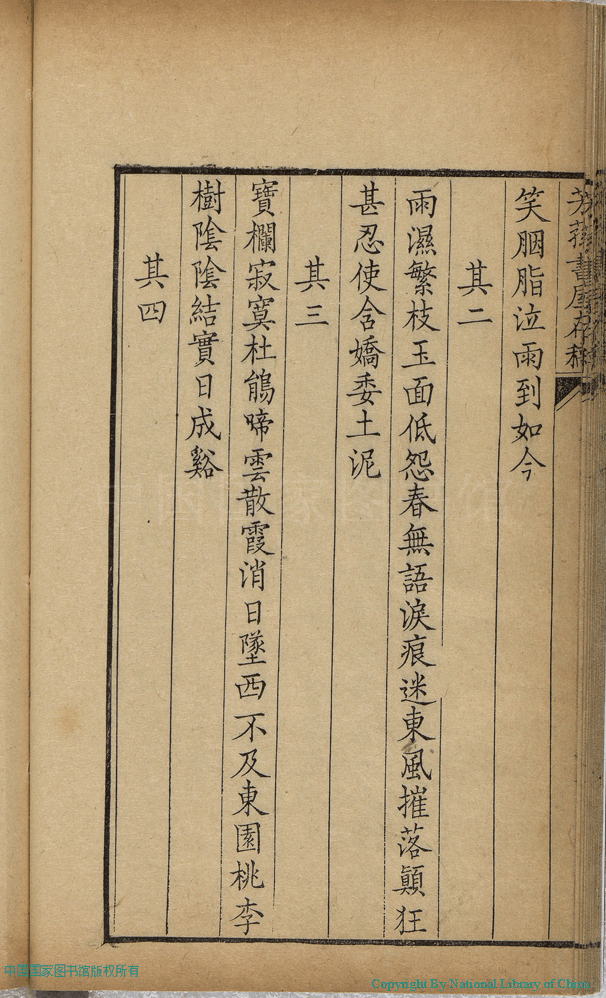 笑胭脂泣雨到如今
其二
雨濕繁枝玉面低怨春無語淚痕迷東風摧落顛狂
甚忍使含嬌委土泥
其三
寶欄寂寞杜鵑啼雲散霞消日墜西不及東園桃李
樹陰陰結實日成谿
其四
中国国家图书馆版权所有
Copyright By National Library of China